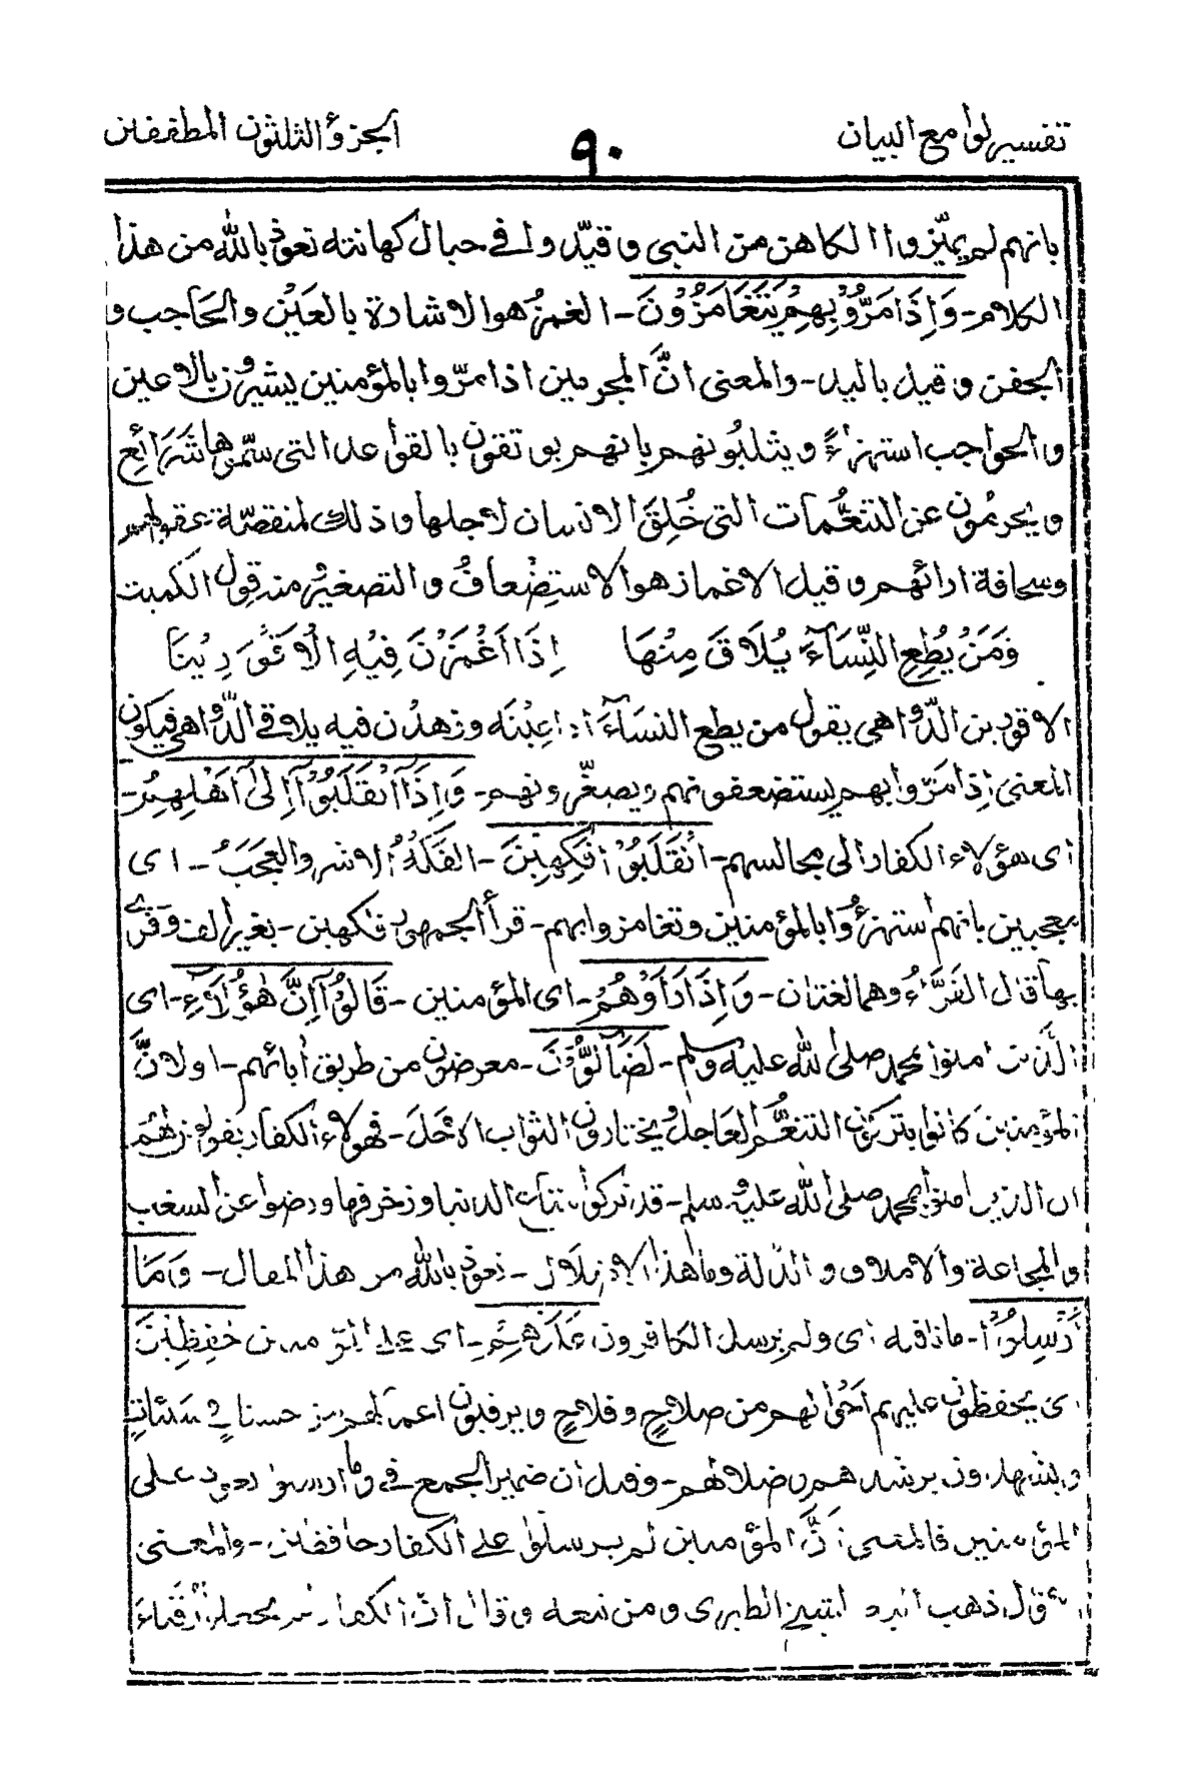 تفسير لوامع البيان ٩٠ الجزؤ الثلثون المطففين
بانهم لم يميّزوا الكاهن من النبي وقيّدوا في حبال كهانته نعوذ بالله من هذا
الكلام - وَاِذَا مَرُّوْا بِهِمْ يَتَغَامَزُوْنَ - الغمزُ هو الاشارة بالعَيْن والحَاجب و
الجفن وقيل باليد - والمعنى انَّ المجرمين اذا مرّوا بالمؤمنين يشيرون بالاعين
والحواجب استهزاءً ويثلبُونهم بانهم يوتقون بالقواعد التى سمّوها شَرَائِع
ويحرمُون عن التنعُّمات التى خُلِقَ الانسان لاجلها وذلك لمنقصة عقولهم
وسخافة ارائهم وقيل الاغماز هو الاستِضْعافُ والتصغيرُ منه قول الكميت
وَمَنْ يُطِعِ النِّسَآءَ يُلَاقَ مِنْهَا اِذَا اَغْمَزْنَ فِيْهِ الْاَقْوَرِيْنَا
الاقورين الدّواهى يقول من يطع النسَآءَ اذا عِبْنَه وزهدن فيه يلاقى الدّواهى فيكون
المعنى اِذا مَرّوا بهم يستضعفونهم ويصغّرونهم - وَاِذَا انْقَلَبُوْآ اِلٰى اَهْلِهِمْ -
اى هؤلاء الكفار الى مجالسهم - انْقَلَبُوْا فَكِهِيْنَ - الفَكَهُ الاشر والعَجَبُ - اى
معجبين بانهم استهزءُوا بالمؤمنين وتغامزوا بهم - قرأ الجمهور فاكهين - بغير الف وقرئ
بها قال الفَرَّاءُ وهما لغتان - وَاِذَا رَاَوْهُمْ - اى المؤمنين - قَالُوْآ اِنَّ هٰؤُلَآءِ - اى
الّذين امنوا بمحمد صلى الله عليه وسلم - لَضَآلُّوْنَ - معرضون من طريق ابائهم - او لانَّ
المؤمنين كانوا يتركون التنعُّم العاجل ويختارون الثواب الاجل - فهولاء الكفار يقولون لهم
ان الذين امنوا بمحمد صلى الله عليه وسلم - قد تركوا متاع الدنيا وزخرفها ورضوا عن السغب
والمجاعة والاملاق والذلة وما هذا الا ضلال - نعوذ بالله من هذا المقال - وَمَا
اُرْسِلُوْا - ما نافيه اى ولم يرسل الكافرون عَلَيْهِمْ - اى على المؤمنين حٰفِظِيْنَ
اى يحفظون عليهم احوالهم من صلاحٍ وفلاحٍ ويرقبون اعمالهم من حسناتٍ و سيئاتٍ
و يرشدهم ضلالهم - وقيل ان ضمير الجمع فى وما ارسلوا يعود على
المؤمنين فالمعنى اَنَّ المؤمنين لم يرسلوا على الكفار حافظين - والمعنى
الاول ذهب اليه الطبرى ومن تبعه وقال انّ الكفار لم يجعلوا رقباءَ